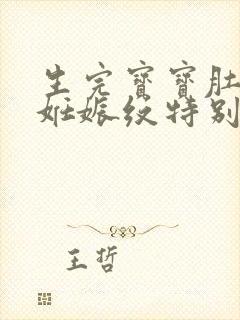 生完寶寶肚
妊娠紋特別
王哲